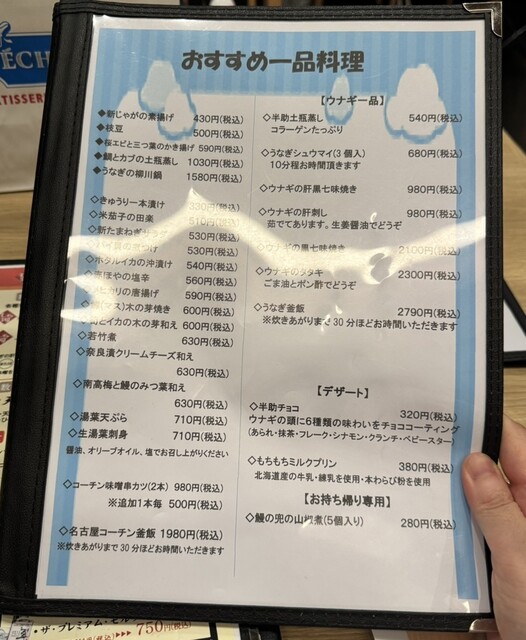 おすすめ一品料理
◆新じゃがの素揚げ 430円(税込)
◆枝豆 500円(税込)
◆桜エビと三つ葉のかき揚げ 590円(税込)
◆鯛とカブの土瓶蒸し 1030円(税込)
◆うなぎの柳川鍋 1580円(税込)
◇きゅうり一本漬け 330円(税込)
◇米茄子の田楽 510円(税込)
◇新たまねぎサラダ 530円(税込)
530円(税込)
◇ホタルイカの沖漬け 540円(税込)
ほやの塩辛 560円(税込)
ヒカリの唐揚げ 590円(税込)
(マス)木の芽焼き 600円(税込)
とイカの木の芽和え 600円(税込)
◇若竹煮 630円(税込)
◇奈良漬クリームチーズ和え
630円(税込)
◇南高梅と鰻のみつ葉和え
630円(税込)
◇湯葉天ぷら 710円(税込)
◇生湯葉刺身 710円(税込)
醤油、オリーブオイル、塩でお召し上がりください
◇コーチン味噌串カツ(2本) 980円(税込)
※追加1本毎 500円(税込)
◇名古屋コーチン釜飯 1980円(税込)
※炊きあがりまで30分ほどお時間いただきます
【ウナギ一品】
◇半助土瓶蒸し 540円(税込)
コラーゲンたっぷり
◇うなぎシュウマイ(3個入) 680円(税込)
10分程お時間頂きます
◇ウナギの肝黒七味焼き 980円(税込)
◇ウナギの肝刺し 980円(税込)
茹でてあります。生姜醤油でどうぞ
◇ウナギの黒七味焼き 2100円(税込)
◇ウナギのタタキ 2300円(税込)
ごま油とポン酢でどうぞ
◇うなぎ釜飯 2790円(税込)
※炊きあがりまで30分ほどお時間いただきます
【デザート】
◇半助チョコ 320円(税込)
ウナギの頭に6種類の味わいをチョココーティング
(あられ・抹茶・フレーク・シナモン・クランチ・ベビースター)
◇もちもちミルクプリン 380円(税込)
北海道産の牛乳・練乳を使用・本わらび粉を使用
【お持ち帰り専用】
◇鰻の兜の山椒煮(5個入り) 280円(税込)
・ザ・プレミアム・モル
750円(税込)